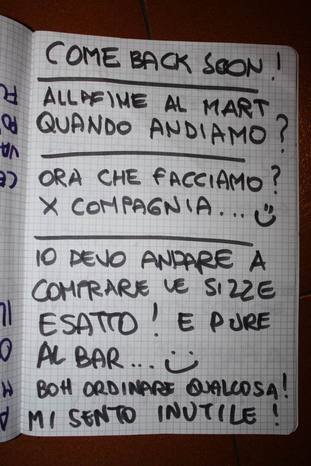 COME BACK SOON!
ALLAFINE AL MART
QUANDO ANDIAMO?
ORA CHE FACCIAMO?
X COMPAGNIA... :)
IO DEVO ANDARE A
COMPRARE LE SIZZE
ESATTO! E PURE
AL BAR... :)
BOH ORDINARE QUALCOSA!
MI SENTO INUTILE!